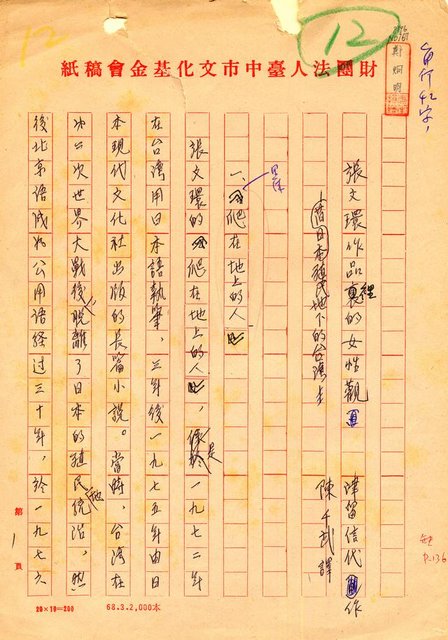 財團法人臺中市文化基金會稿紙
12
12
鄭炯明
每行42字,
張文環作品裡的女性觀
津留信代作
舊日本殖民地下的台灣
陳千武譯
一、爬在地上的人
張文環的爬在地上的人,係於一九七二年
在台灣用日本語執筆,三年後一九七五年由日
本現代文化社出版的長篇小說。當時,台灣在
次世界大戰後脫離了日本的殖民地統治,然
後北京語成為公用語経过三十年,於一九七六
P.136
第1頁
20×10=200
68.3.2,000本